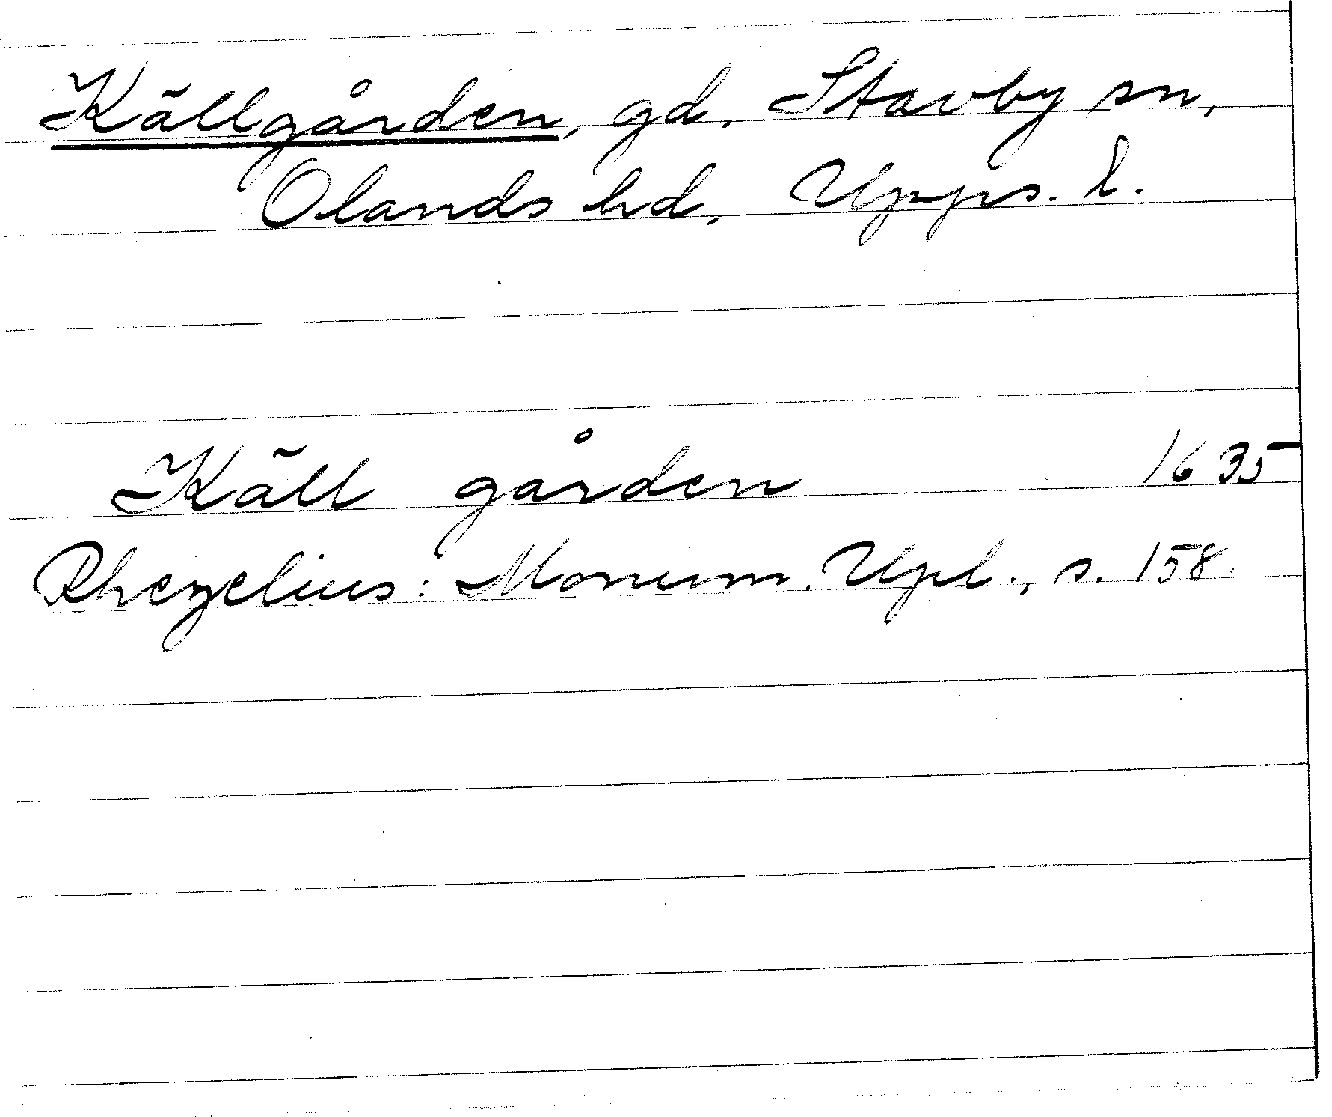 Källgården, gd, Stavby sn,
Olands hd, Upps. l.
Käll gården 1635
Rhezelius: Monum. Upl., s. 158.